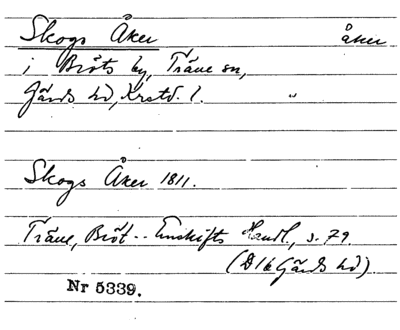 Skogs Åker åker
i Bröts by, Träne sn,
Gärds hd, Krstd. l. "
Skogs Åker 1811.
Träne, Bröt -- Enskifts Handl., s. 79
(D 16 Gärds hd).
Nr 5339.